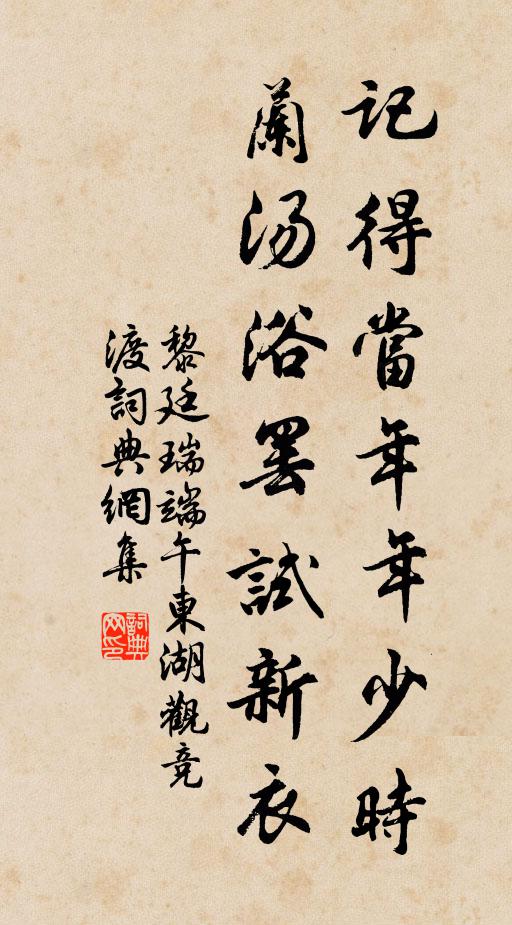 記得當年年少時
蘭湯浴罷試新衣
黎廷瑞端午東湖觀竞
渡詞典網集
詞典网印